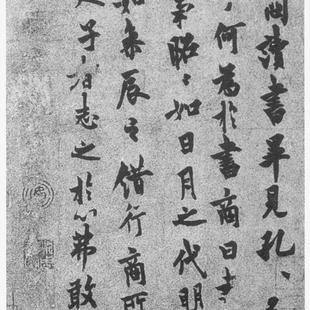 商讀書畢見孔〻
何為於書商曰書
事昭〻如日月之代明
如參辰之錯行商所
夫子者志之於心弗敢